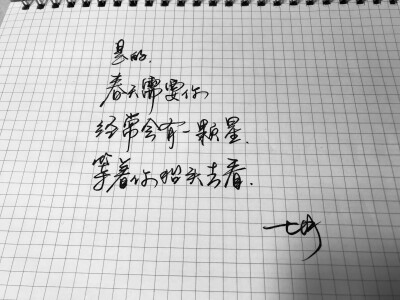 是的.
春天需要你
经常会有一颗星.
等着你抬头去看.